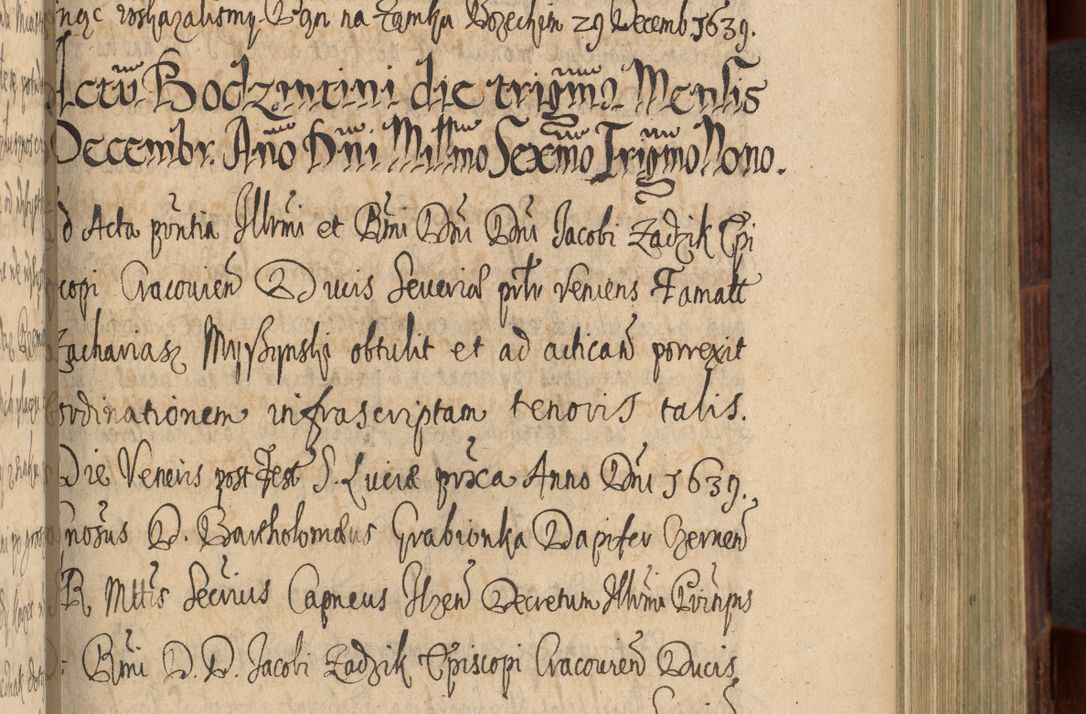 roskazalismy. Dztn na Zamku Bozechin 29 Decemb. 1639.
Actũ Bodzentini die trigm̃a Mensis
Decembr. Año Dñi Millmo Sexm̃o Trigmo Nono.
d Acta pũntia Illrmi et Rm̃i Dñi Dñi Jacobi Zadzik Epi
copi Cracovień Ducis Severiæ prłr veniens Famatt
Zacharias Myszynski obtulit et ad acticań porrexit
ordinationem infrascriptam tenoris talis.
Die Veneris post Fest S. Luciæ prxa Anno Dñi 1639.
nosus D. Bartholomæus Grabionka Dapifer Czerneń
S R Mttis Secrius Capneus Ilzeń Decretum Illrmi Prĩnpis
Rm̃i D. D. Jacobi Zadzik Episcopi Cracovień Ducis